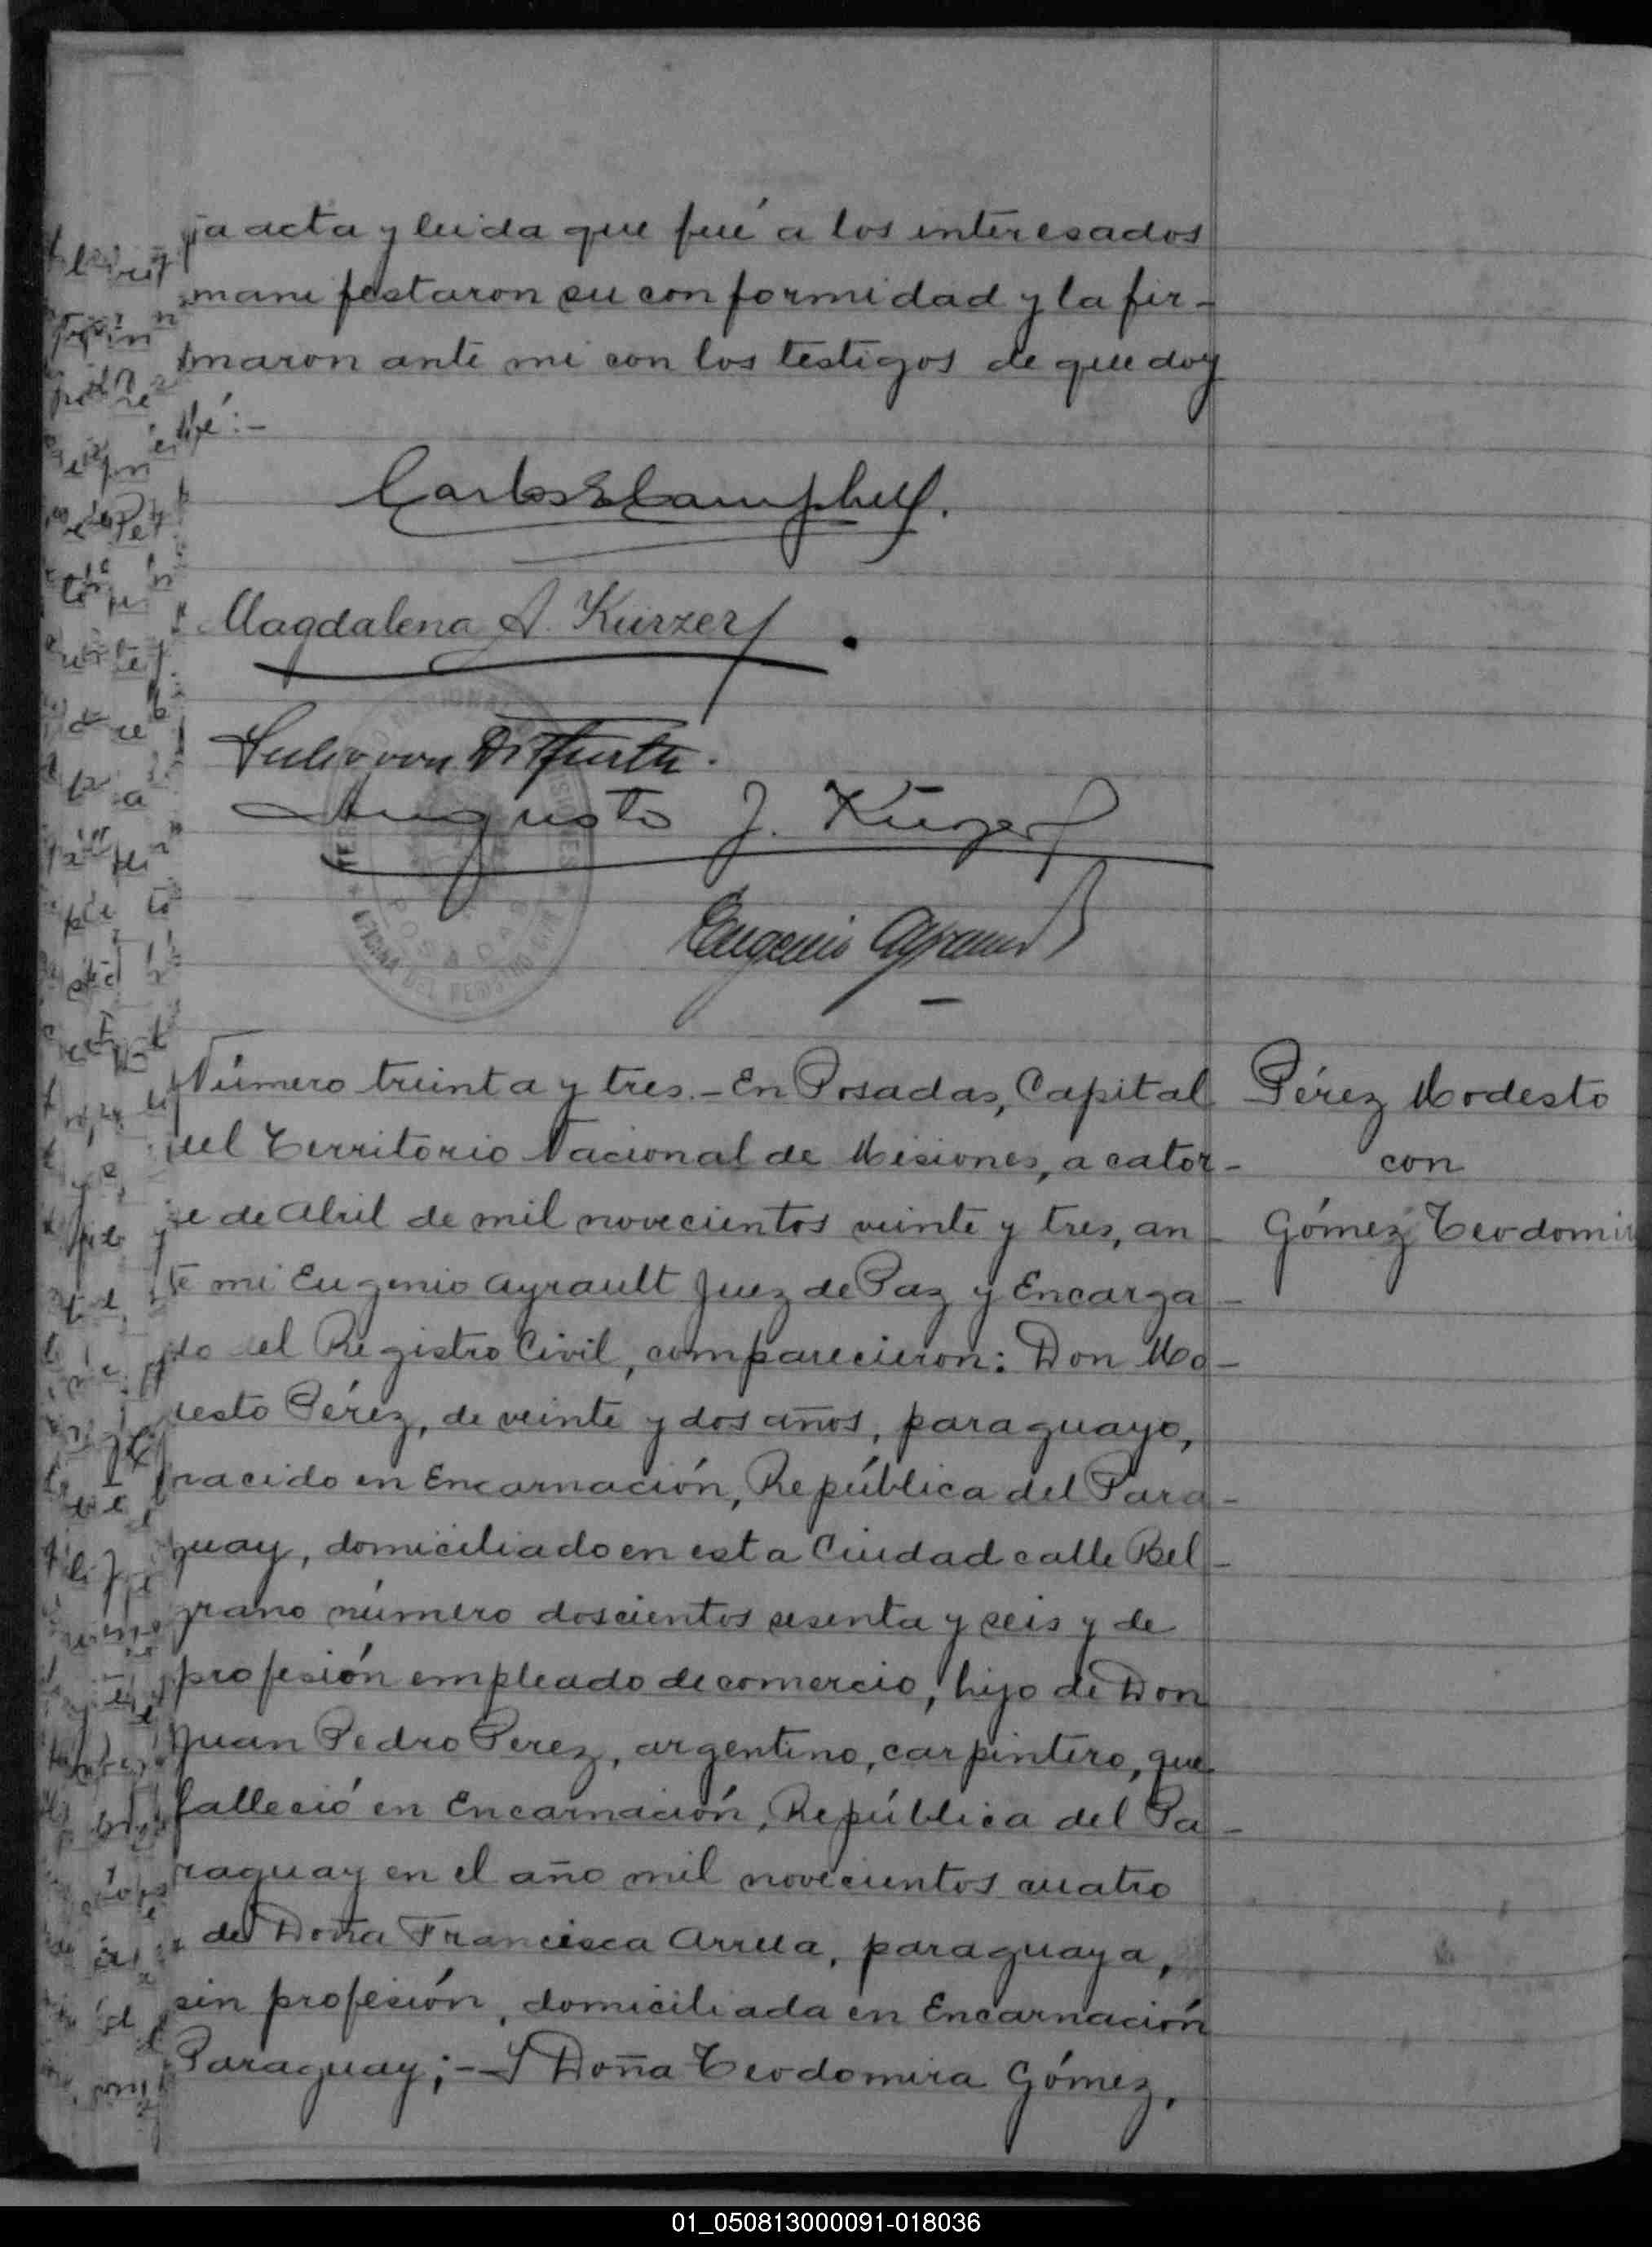 ja acta y leida que fué a los interesados
manifestaron su conformidad y la fir-
maron ante mi con los testigos de que doy
fé:-
Carlos E Campbell.
Magdalena A. Kürzer
von Ditfurth.
Augusto J. Kürzer
Eugenio Ayrault
POSADAS
OFICINA DEL REGISTRO CIVIL
Número treinta y tres.- En Posadas, Capital
del Territorio Nacional de Misiones, a cator-
ce de Abril de mil novecientos veinte y tres, an-
te mi Eugenio Ayrault Juez de Paz y Encarga-
do del Registro Civil, comparecieron: Don Mo-
desto Pérez, de veinte y dos años, paraguayo,
nacido en Encarnación, República del Para-
guay, domiciliado en esta Ciudad calle Bel-
grano número doscientos sesenta y seis y de
profesión empleado de comercio, hijo de Don
Juan Pedro Perez, argentino, carpintero, que
falleció en Encarnación, República del Pa-
raguay en el año mil novecientos cuatro
de Doña Francisca Arrua, paraguaya,
sin profesión, domiciliada en Encarnación
Paraguay;- Y Doña Teodomira Gómez,
Pérez Modesto
con
Gómez Teodomi
01_050813000091-018036